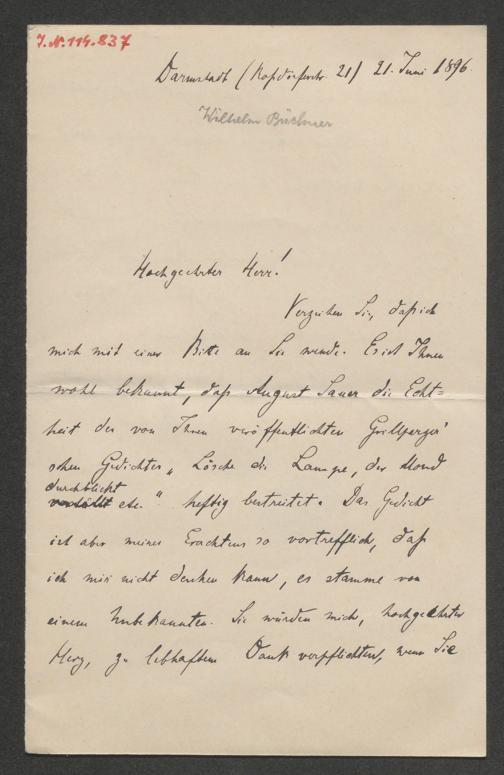 J.N. 114.837
Darmstadt (Roßdörferstr. 21) 21. Juni 1896.
Wilhelm Büchner
Hochgeehrter Herr!
Verzeihen Sie, daß ich
mich mit einer Bitte an Sie wende. Es ist Ihnen
wohl bekannt, daß August Sauer die Echt=
heit des von Ihnen veröffentlichten Grillparzer'
schen Gedichtes „Lösche die Lampe, der Mond
durchblickt
etc." heftig bestreitet. Das Gedicht
ist aber meines Erachtens so vortrefflich, daß
ich mir nicht denken kann, es stamme von
einem Unbekannten. Sie würden mich, hochgeehrter
Herr, zu lebhaftem Dank verpflichten, wenn Sie